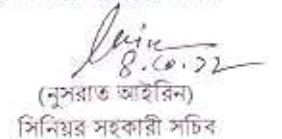 8.10.22
(নুসরাত আইরিন)
সিনিয়র সহকারী সচিব